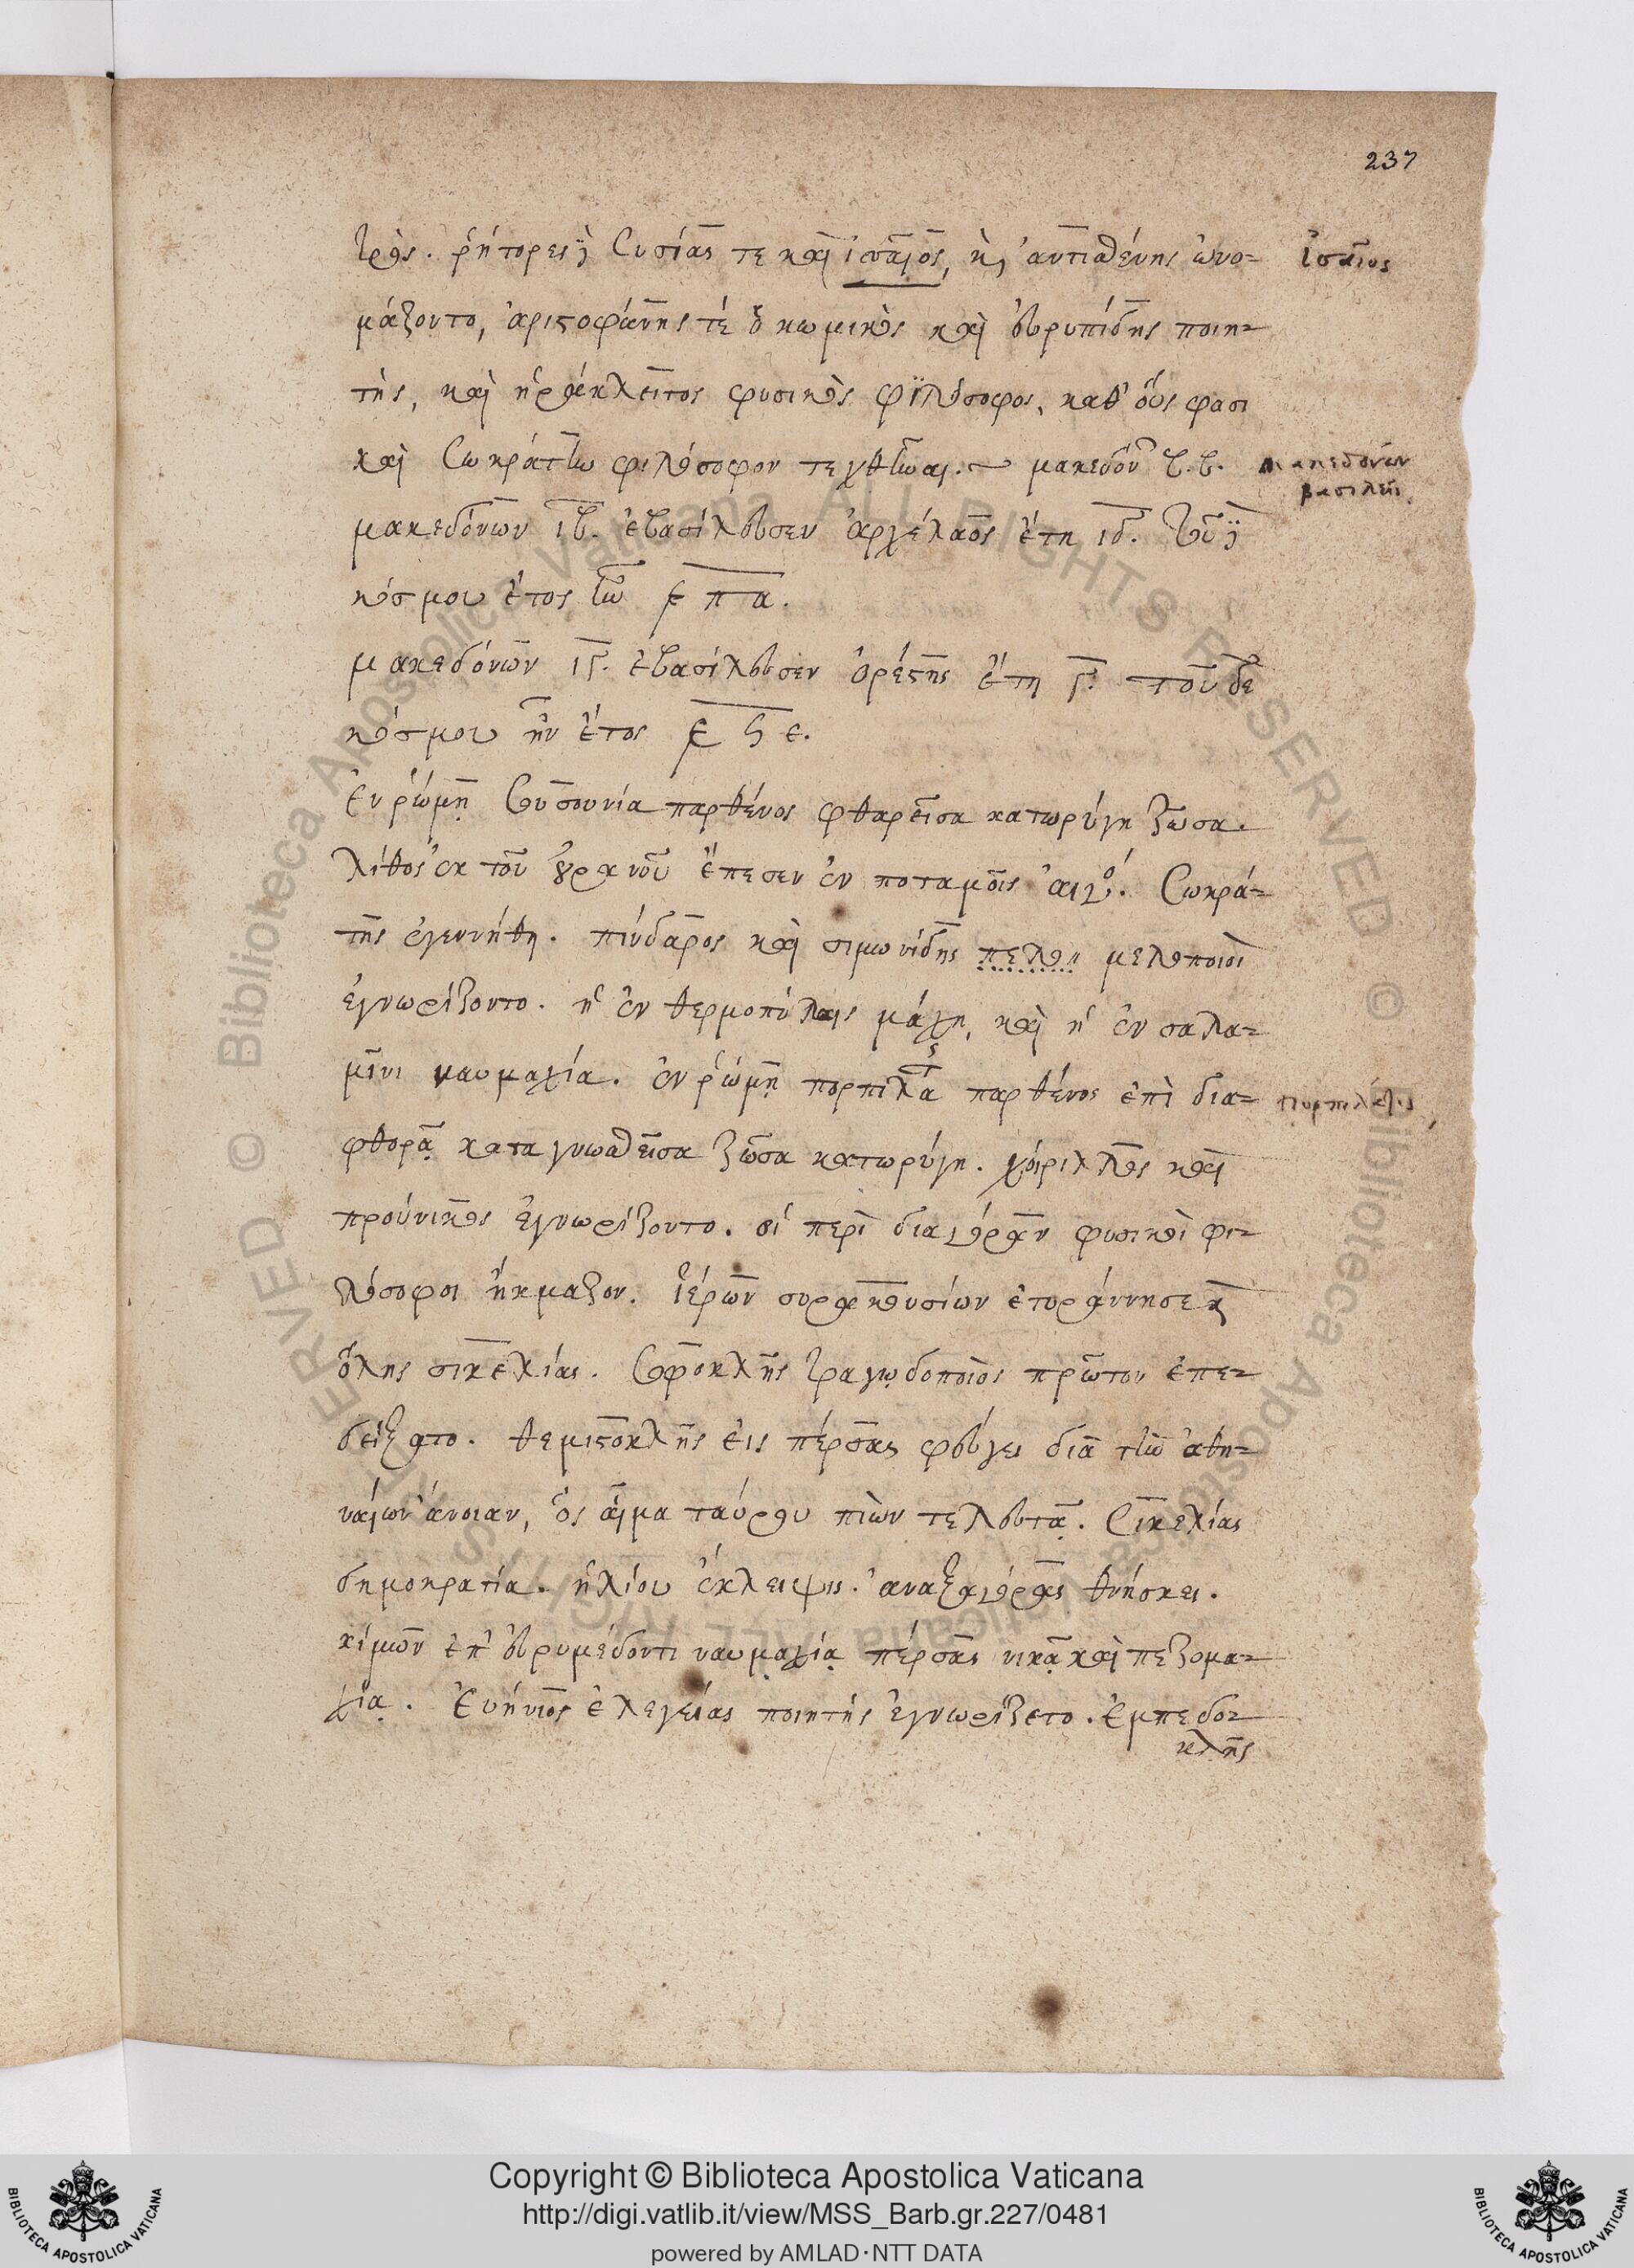 237
τρὸς. ῥήτορες δὲ Λυσίας τε καὶ ἰσαῖος, κ̀ ἀντισθένης ὠνο- ἰσαῖος
μάζοντο, ἀριστοφάνης τέ ὁ κωμικὸς καὶ ἐυρυπίδης ποιη-
τὴς, καὶ ἡράκλειτος φυσικὸς φιλόσοφος, καθ' οὓς φασι
καὶ Σωκράτην φιλόσοφον τεχθῆναι. μακεδόν β.β. μακεδόνων
βασιλεῖς.
μακεδόνων ιβ. ἐβασίλευσεν ἀρχέλαος ἔτη ιδ. τοῦ δὲ
κόσμου ἔτος ἦν ͵ε π α.
μακεδόνων ιγ. ἐβασίλευσεν ὀρέστης ἔτη γ. τοῦ δε
κόσμου ἦν ἔτος ͵ε ϟ ε.
Ἐν ῥώμῃ παρθένος φθαρεῖσα κατωρύγη ζῶσα.
λίθος ἐκ τοῦ οὐρανοῦ ἔπεσεν ἐν ποταμοῖς αἰγὸ. Σωκρά-
της ἐγεννήθη. πίνδαρος καὶ σιμωνίδης πελο μελοποιοὶ
ἐγνωρίζοντο. ἡ ἐν θερμοπύλαις μάχη, καὶ ἡ ἐν σαλα-
μῖνι ναυμαχία. ἐν ῥώμῃ πορπιλα παρθένος ἐπὶ δια-
φθορᾷ καταγνωσθεῖσα ζῶσα κατωρύγη. χοίριλλος καὶ
προύνικος ἐγνωρίζοντο. οἱ περὶ διαγόραν φυσικοὶ φι-
λόσοφοι ἤκμαζον. ἱέρων συρακουσίων ἐτυράννησε κ̀
ὅλης σικελίας. Σοφοκλῆς τραγῳδοποιὸς πρῶτον ἐπε-
δείξατο. θεμιστοκλῆς εἰς πέρσας φεύγει διὰ τὴν ἀθη-
ναίων ἄνοιαν, ὃς αἷμα ταύρου πιὼν τελευτᾷ. Σικελίας
δημοκρατία. ἡλίου ἔκλειψις. ἀναξαγόρας θνήσκει.
κίμων ἐπ' ἐυρυμέδοντι ναυμαχίᾳ πέρσας νικᾷ καὶ πεζομα-
χίᾳ. Ἐυήνιος ἐλεγείας ποιητής ἐγνωρίζετο. ἐμπεδο-
κλῆς
Copyright © Biblioteca Apostolica Vaticana
http://digi.vatlib.it/view/MSS_Barb.gr.227/0481
powered by AMLAD·NTT DATA